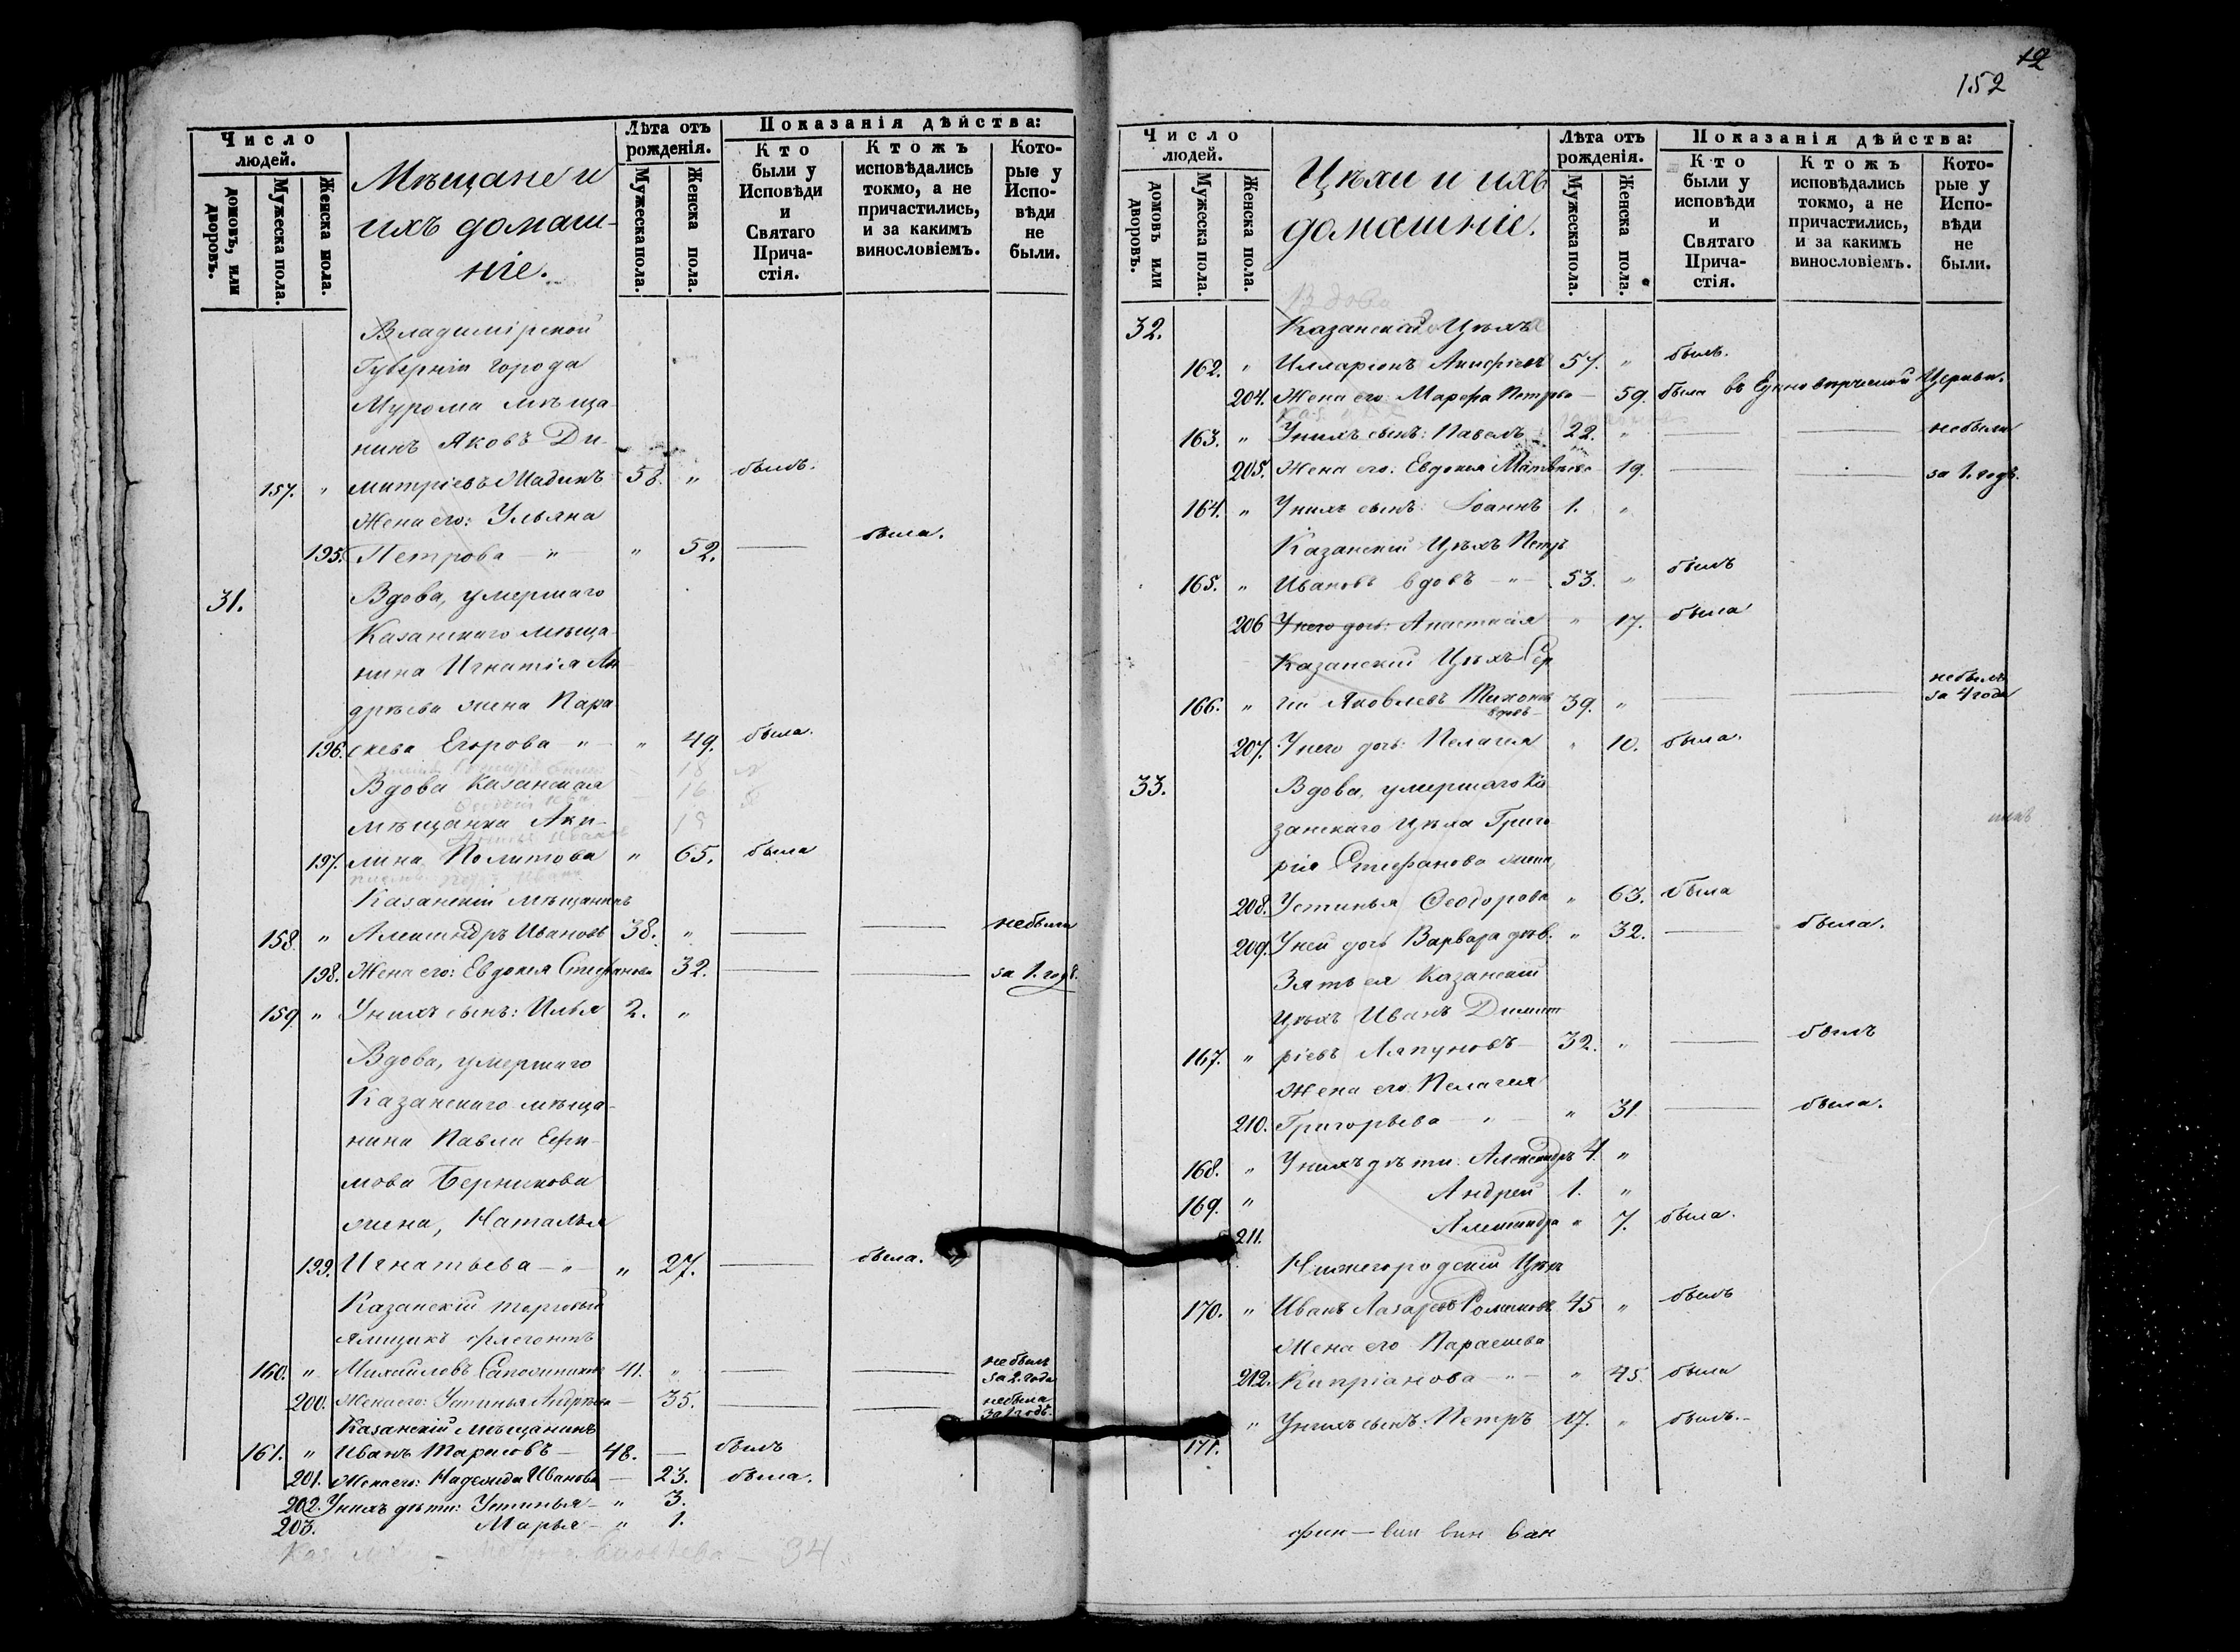 Число людей.
домовъ, или дворовъ.
Мужеска пола.
Женска пола.
Мѣщане и
ихъ домаш-
ніе.
Лѣта отъ рожденія.
Мужеска пола.
Женска пола.
Показанія дѣйства:
Кто были у Исповѣди и Святаго Прича- стія.
Ктожъ исповѣдались токмо, а не причастились, и за какимъ винословіемъ.
Кото- рые у Испо- вѣди не были.
Владимірской
Губерніи города
Мурома мѣща-
нинъ Яковъ Ди-
157. " митріевъ Шадинъ 58. " былъ.
Жена его: Ульяна
195. Петрова — " — " 52. — была.
31. Вдова, умершаго
Казанскаго мѣща-
нина Игнатія Ан-
дрѣева жена Пара-
196. скева Егорова — " — " 49. была.
Вдова Казанская
мѣщанка Аку-
197. лина Политова " 65. была
Казанскій мѣщанинъ
158. " Александръ Ивановъ 38. " — — небыли
198. Жена его: Евдокия Стефанова 32. — — за 1. годъ.
159. " У нихъ сынъ: Илья 2. "
Вдова, умершаго
Казанскаго мѣща-
нина Павла Ефи-
мова Берникова
жена, Наталья
199. Игнатьева — " — " 27. — была.
Казанскій торговый
ямщикъ Флегонтъ
160. " Михайловъ Сапожниковъ 41. " — — небылъ за 2. года
200. Жена его: Устинья Андрѣева — 35. — — небыла за 1 годъ.
Казанскій мѣщанинъ
161. " Иванъ Тарасовъ — 48. — былъ
201. Жена его: Надежда Иванова — 23. была.
202. У нихъ дѣти: Устинья — " 3.
203. Марья — " 1.
34
12
152
Число людей.
домовъ или дворовъ.
Мужеска пола.
Женска пола.
Цѣхи и ихъ
домашніе.
Лѣта отъ рожденія.
Мужеска пола.
Женска пола.
Показанія дѣйства:
Кто были у исповѣди и Святаго Прича- стія.
Ктожъ исповѣдались токмо, а не причастились, и за какимъ винословіемъ.
Кото- рые у Испо- вѣди не были.
Вдова
32. Казанскій Цѣхъ
162. " Илларіонъ 57. " былъ.
204. Жена его: Марфа Петрова — 59. была въ Единовѣрческой Церкви.
163. " У нихъ сынъ: Павелъ 22. " — — небыли
205. Жена его: Евдокия Матвѣева — 19. — — за 1. годъ.
164. " У нихъ сынъ: Іоаннъ 1. "
Казанскій Цѣхъ Петръ
165. " Ивановъ вдовъ — " — 53. " былъ
206 У него дочь: Анастасія " 17. была
Казанскій Цѣхъ Сер-
166. " гій Яковлевъ Тихоновъ вдовъ — 39. " — — небылъ за 4 года
207. У него дочь: Пелагия " 10. была.
33. Вдова, умершаго Ка-
занскаго Цѣха Григо-
рія Стефанова жена,
208. Устинья Феодорова " 63. была
209. У ней дочь Варвара дѣв. " 32. — была.
Зять ея Казанскій
Цѣхъ Иванъ Димит-
167. " ріевъ Ляпуновъ — 32. " — былъ
Жена его: Пелагия
210. Григорьева — " — " 31 — была.
168. " У нихъ дѣти: Александръ 4. "
169. " Андрей 1. "
211. Александра " 7. была.
Нижегородскій Цѣхъ
170. " Иванъ Лазаревъ Романовъ 45 " былъ
Жена его Параскева
212. Кипріанова — " — " 45. была
171. " У нихъ сынъ: Петръ 17. " былъ. —